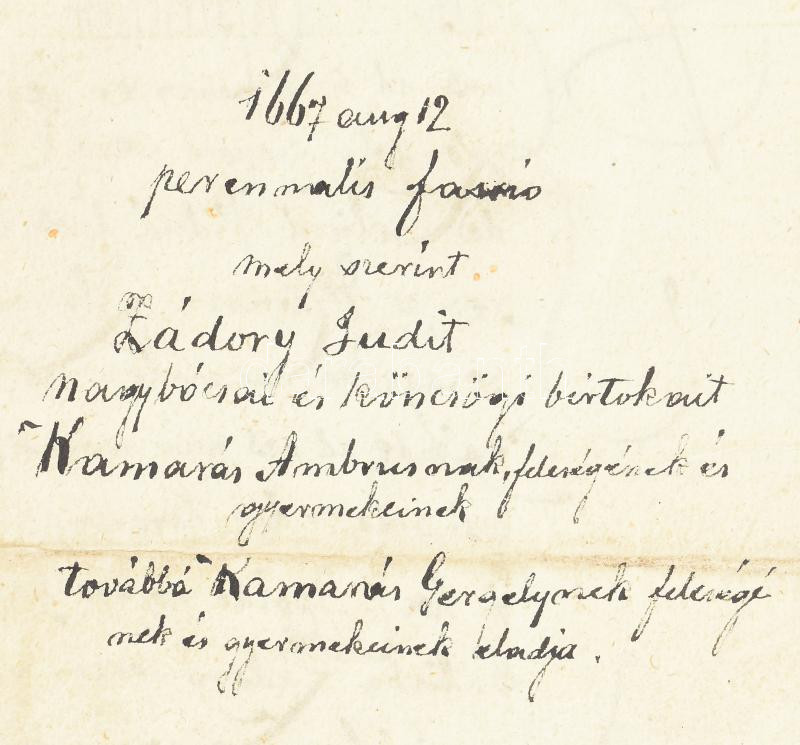 1667 aug 12
perennalis fassio
mely szerint
Zádory Judit
nagybócsai és köncsögi birtokait
Kamarás Ambrusnak, feleségének és
gyermekeinek
továbbá Kamarás Gergelynek feleségé
nek és gyermekeinek eladja.